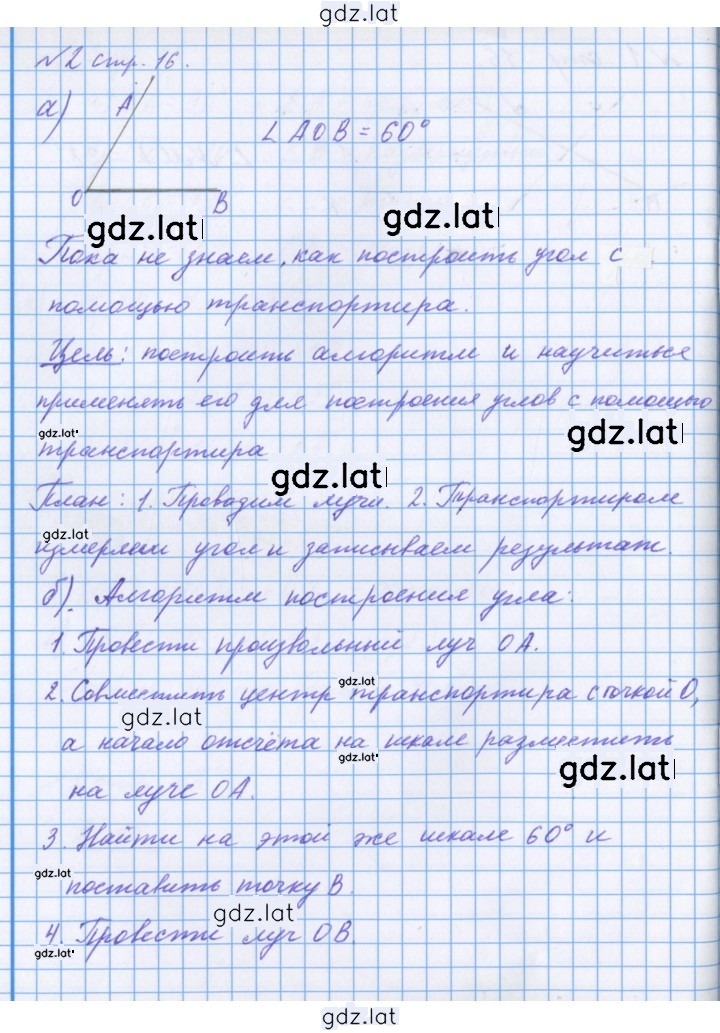 gdz.lat
№2 стр. 16.
а)
A
∠ AOB = 60°
O
B
gdz.lat
gdz.lat
Пока не знаем, как построить угол с
помощью транспортира.
Цель: построить алгоритм и научиться
применять его для построения углов с помощью
gdz.lat
gdz.lat
транспортира
gdz.lat
План: 1. Проводим лучи. 2. Транспортиром
gdz.lat
измеряем угол и записываем результат.
б). Алгоритм построения угла:
1. Провести произвольный луч OA.
gdz.lat
2. Совместить центр транспортира с точкой O,
gdz.lat
а начало отсчёта на шкале разместить
gdz.lat
gdz.lat
на луче OA.
3. Найти на этой же шкале 60° и
gdz.lat
поставить точку B.
gdz.lat
4. Провести луч OB.
gdz.lat
gdz.lat